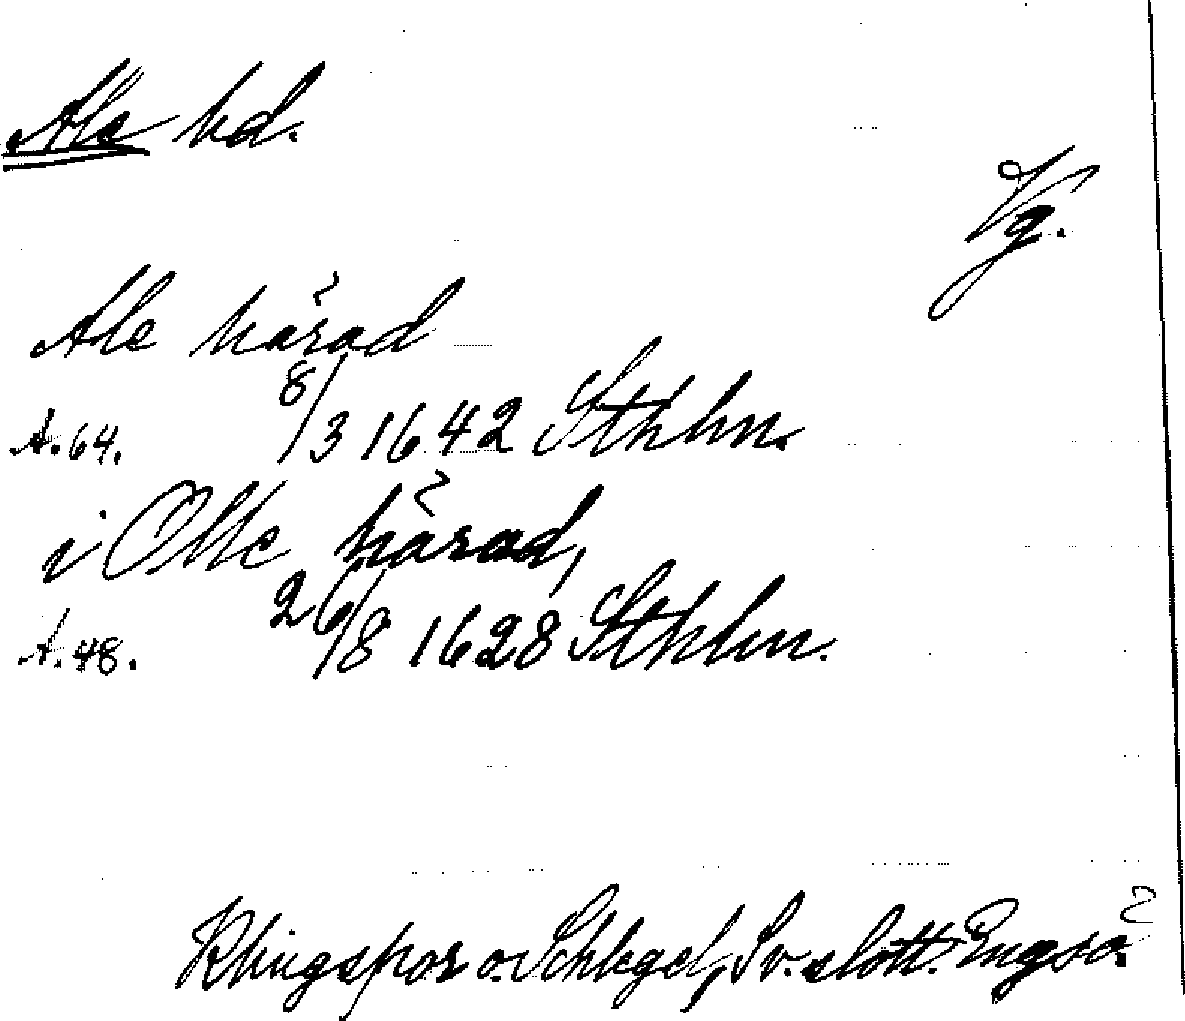 Ale hd.
Vg.
Ale härad
A. 64. 8/3 1642 Sthlm.
i Olle härad,
A. 48. 26/8 1628 Sthlm.
Klingspor o. Schlegel, Sv. slott. Engsö.